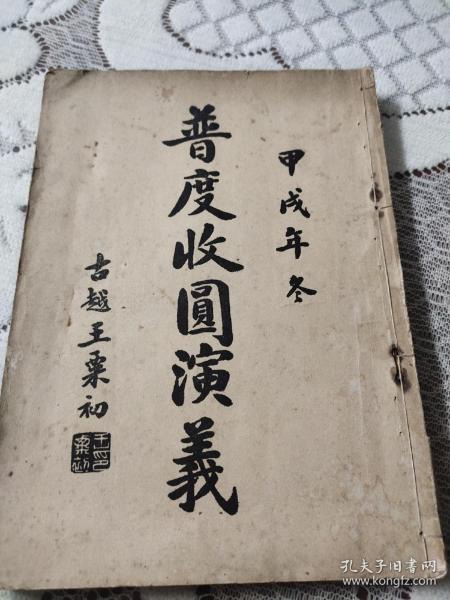 甲戌年冬
普度收圓演義
古越王粟初
孔夫子旧书网
www.kongfz.com